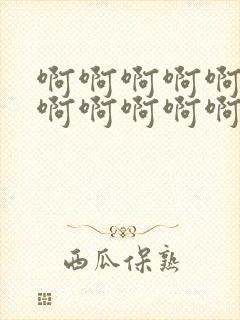 啊啊啊啊啊
啊啊啊啊啊
西瓜保熟